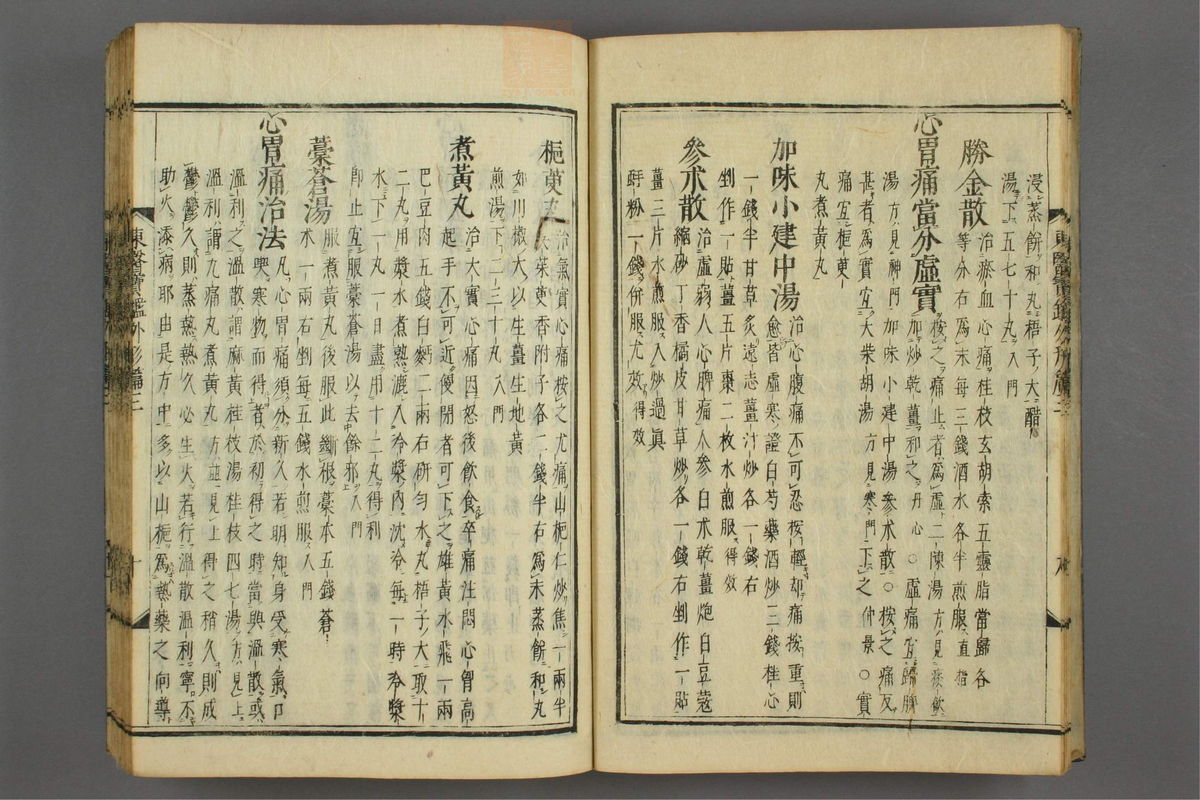 浸蒸餅和丸梧子大醋
湯下五七十丸入門
勝金散治瘀血心痛桂枝玄胡索五靈脂當歸各
等分右爲末每三錢酒水各半煎服直指
心胃痛當分虛實
按之痛止者爲虛二陳湯方見痰飮
加炒乾薑和之丹心○虛痛宜歸脾
湯方見神門加味小建中湯參朮散○按之痛反
甚者爲實宜大柴胡湯方見寒門下之仲景○實
痛宜梔萸
丸煮黃丸
加味小建中湯治心腹痛不可忍按輕却痛按重則
愈皆虛寒證白芍藥酒炒三錢桂心
一錢半甘草灸遠志薑汁炒各一錢右
剉作一貼薑五片棗二枚水煎服得效
參朮散治虛弱人心脾痛人參白朮乾薑炮白豆蔲
縮砂丁香橘皮甘草炒各一錢右剉作一貼
薑三片水煎服入炒過眞
蚌粉一錢併服尤效得效
梔萸丸治氣實心痛按之尤痛山梔仁炒焦一兩半
大茱萸香附子各一錢半右爲末蒸餠和丸
如川椒大以生薑生地黃
煎湯下二三十丸入門
煮黃丸治大實心痛因怒後飮食卒痛注悶心胷高
起手不可近便閉者可下之雄黃水飛一兩
巴豆肉五錢白麪二兩右硏匀水丸梧子大取十
二丸用漿水煮熟漉入冷漿內沈冷每一時冷漿
水下一丸一日盡用十二丸得利
卽止宜服藁蒼湯以去餘邪入門
藁蒼湯服煮黃丸後服此鋤根藁本五錢蒼
朮一兩右剉每五錢水煎服入門
心胃痛治法凡心胃痛須分新久若明知身受寒氣口
喫寒物而得者於初得之時當與溫散或
溫利之溫散謂麻黃桂枝湯桂枝四七湯方見上
溫利謂九痛丸煮黃丸方並見上得之稍久則成
鬱鬱久則蒸熱熱久必生火若行溫散溫利寧不
助火添病耶由是方中多以山梔爲熱藥之向導
東醫寶鑑外形篇三
十
東醫寶鑑外形篇三
九